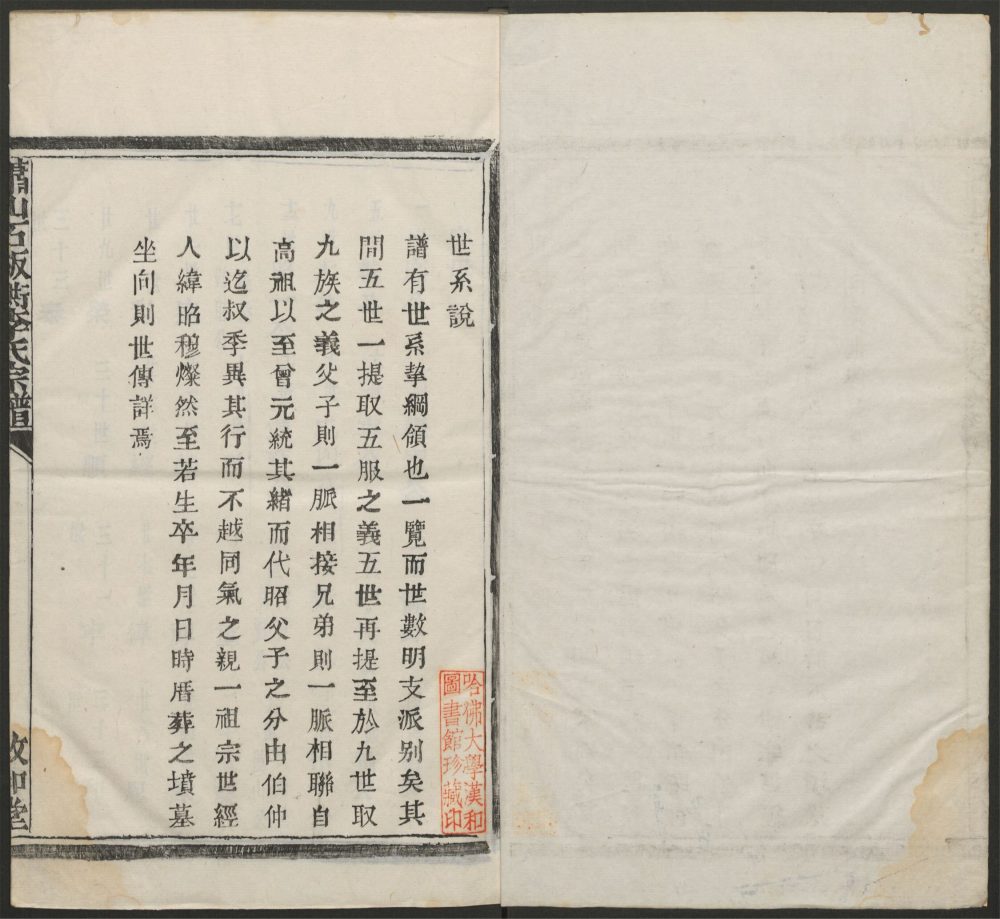 世系說
譜有世系挈綱領也一覽而世數明支派别矣其
間五世一提取五服之義五世再提至於九世取
九族之義父子則一脈相接兄弟則一脈相聯自
高祖以至曾元統其緒而代昭父子之分由伯仲
以迄叔季異其行而不越同氣之親一祖宗世經
人緯昭穆燦然至若生卒年月日時厝葬之墳墓
坐向則世傳詳焉
哈佛大學漢和
圖書館珍藏印
蕭山石板衖李氏宗譜
敦和堂